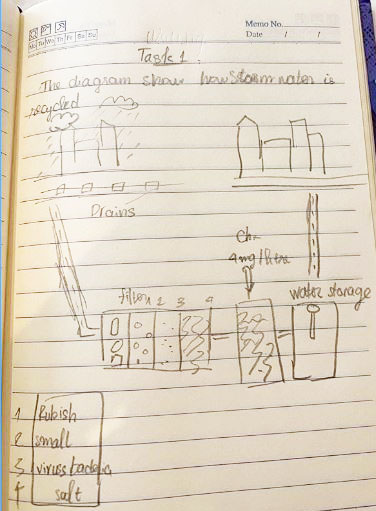 Memo No.
Mo Tu We Th Fr Sa Su
Date / /
Task 1
The diagram show how storm water is
recycled
Drains
4 mg/litre
water storage
filter 2 3 4
1 Rubish
2 small
3 viruss bacteria
4 salt